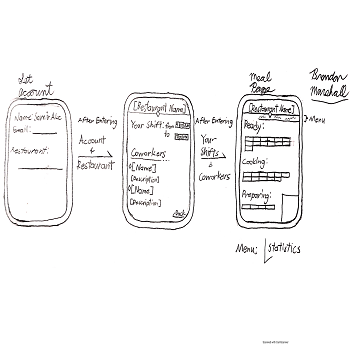 1st
Account
Name: Sam's Abc
Email:
Restaurant:
After Entering
Account
&
Restaurant
[Restaurant Name]
Your Shift: from
to
Coworkers
[Name]
[Description]
[Name]
[Description]
After Entering
Your
Shifts
&
Coworkers
Meal
Page
[Restaurant Name]
Ready:
Cooking:
Preparing:
Brandon
Marshall
Menu
Menu:
Statistics
Scanned with CamScanner